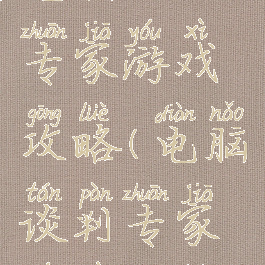 zhuān jiā yóu xì
专家游戏
gōng lüè diàn nǎo
攻略(电脑
tán pàn zhuān jiā
谈判专家